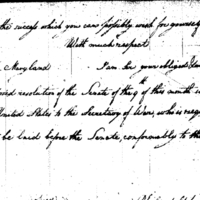 the success which you can possibly wish for yourself
With much respect
Maryland I am Sir your obliged
resolution of the Senate of the 9th of this month
United States to the Secretary of War, who is
be laid before the Senate, conformably to th